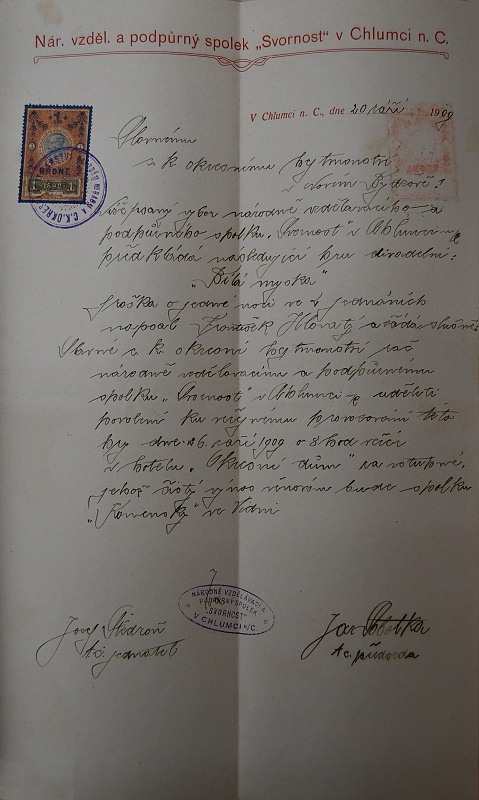 Nár. vzděl. a podpůrný spolek „Svornost" v Chlumci n. C.
V Chlumci n. C., dne 20 září 1909
Slavnému
c. k. okresnímu hejtmanství
v Novém Bydžově!
Níže psaný výbor národně vzdělavacího a
podpůrného spolku „Svornost" v Chlumci n/c
předkládá následující hru divadelní:
„Bílá myška"
fraška o jedné noci ve v jednáních
napsal František Hlavatý a žádá slušně:
Slavné c. k. okresní hejtmanství rač
národně vzdělavacímu a podpůrnému
spolku „Svornost" v Chlumci n/c uděliti
povolení ku veřejnému provozování této
hry dne 26. září 1909 o 8 hod večer
v hotelu „Okresní dům" za vstupné,
jehož čistý výnos věnován bude spolku
„Komenský" ve Vídni
KRONE
1 1898 1
C.K. OKRES
NÁRODNĚ VZDĚLÁVACÍ A
PODPŮRNÝ SPOLEK
„SVORNOST"
V CHLUMCI N/C
Josef
t. č. jednatel
Jar. Sobotka
t. č. předseda